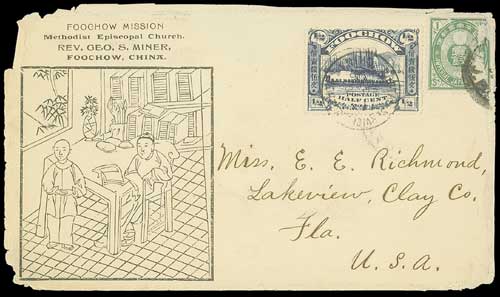 FOOCHOW MISSION
Methodist Episcopal Church.
REV. GEO. S. MINER,
FOOCHOW, CHINA.
FOOCHOW
POSTAGE
HALF CENT
Miss. E. E. Richmond,
Lakeview, Clay Co.
Fla.
U. S. A.